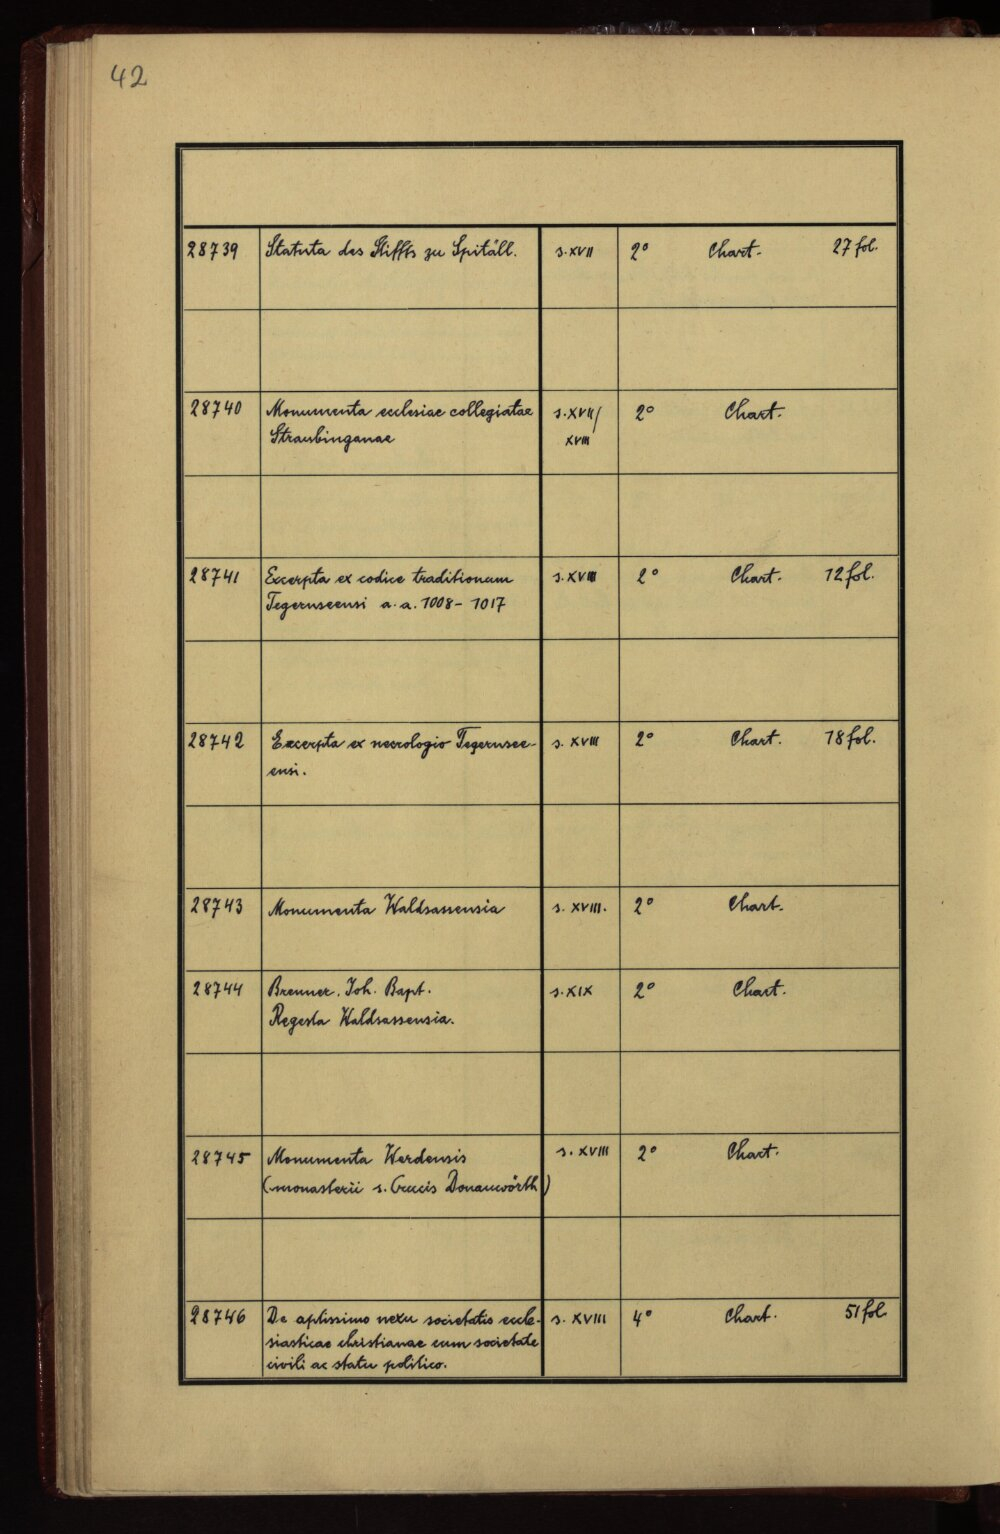 42
28739 Statuta des Stiffts zu Spitäll. s. XVII 2° Chart. 27 fol.
28740 Monumenta ecclesiae collegiatae s. XVII/ 2° Chart.
Straubinganae XVIII
28741 Excerpta ex codice traditionum s. XVIII 2° Chart. 12 fol.
Tegernseensi a. a. 1008 - 1017
28742 Excerpta ex necrologio Tegernsee- s. XVIII 2° Chart. 18 fol.
ensi.
28743 Monumenta Waldsassensia s. XVIII. 2° Chart.
28744 Brenner, Joh. Bapt. s. XIX 2° Chart.
Regesta Waldsassensia.
28745 Monumenta Werdensis s. XVIII 2° Chart.
(monasterii s. Crucis Donauwörth)
28746 De aptissimo nexu societatis eccle- s. XVIII 4° Chart. 51 fol.
siasticae christianae cum societate
civili ac statu politico.